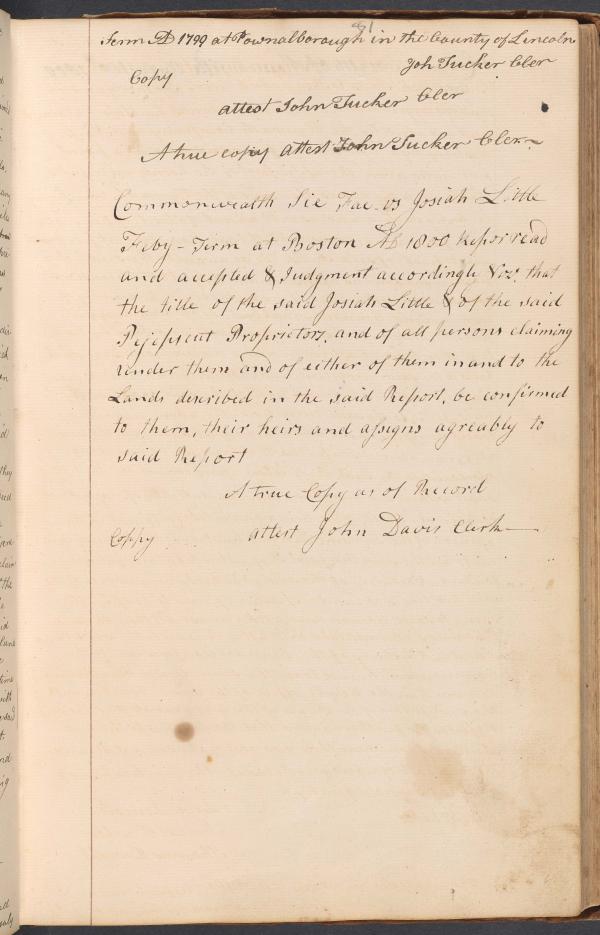 81
Term AD 1799 at Pownalborough in the County of Lincoln
Joh Tucker Cler
Copy
attest John Tucker Cler
A true copy attest John Tucker Cler
Commonwealth Sie Fac vs Josiah Little
Feby - Term at Boston AD 1800 Repor read
and accepted & Judgment accordingly Viz. that
the title of the said Josiah Little & of the said
Pejepscut Proprietors, and of all persons claiming
under them and of either of them in and to the
Lands described in the said Report, be confirmed
to them, their heirs and assigns agreably to
said Report
A true Copy as of Record
attest John Davis Clerk
Coppy